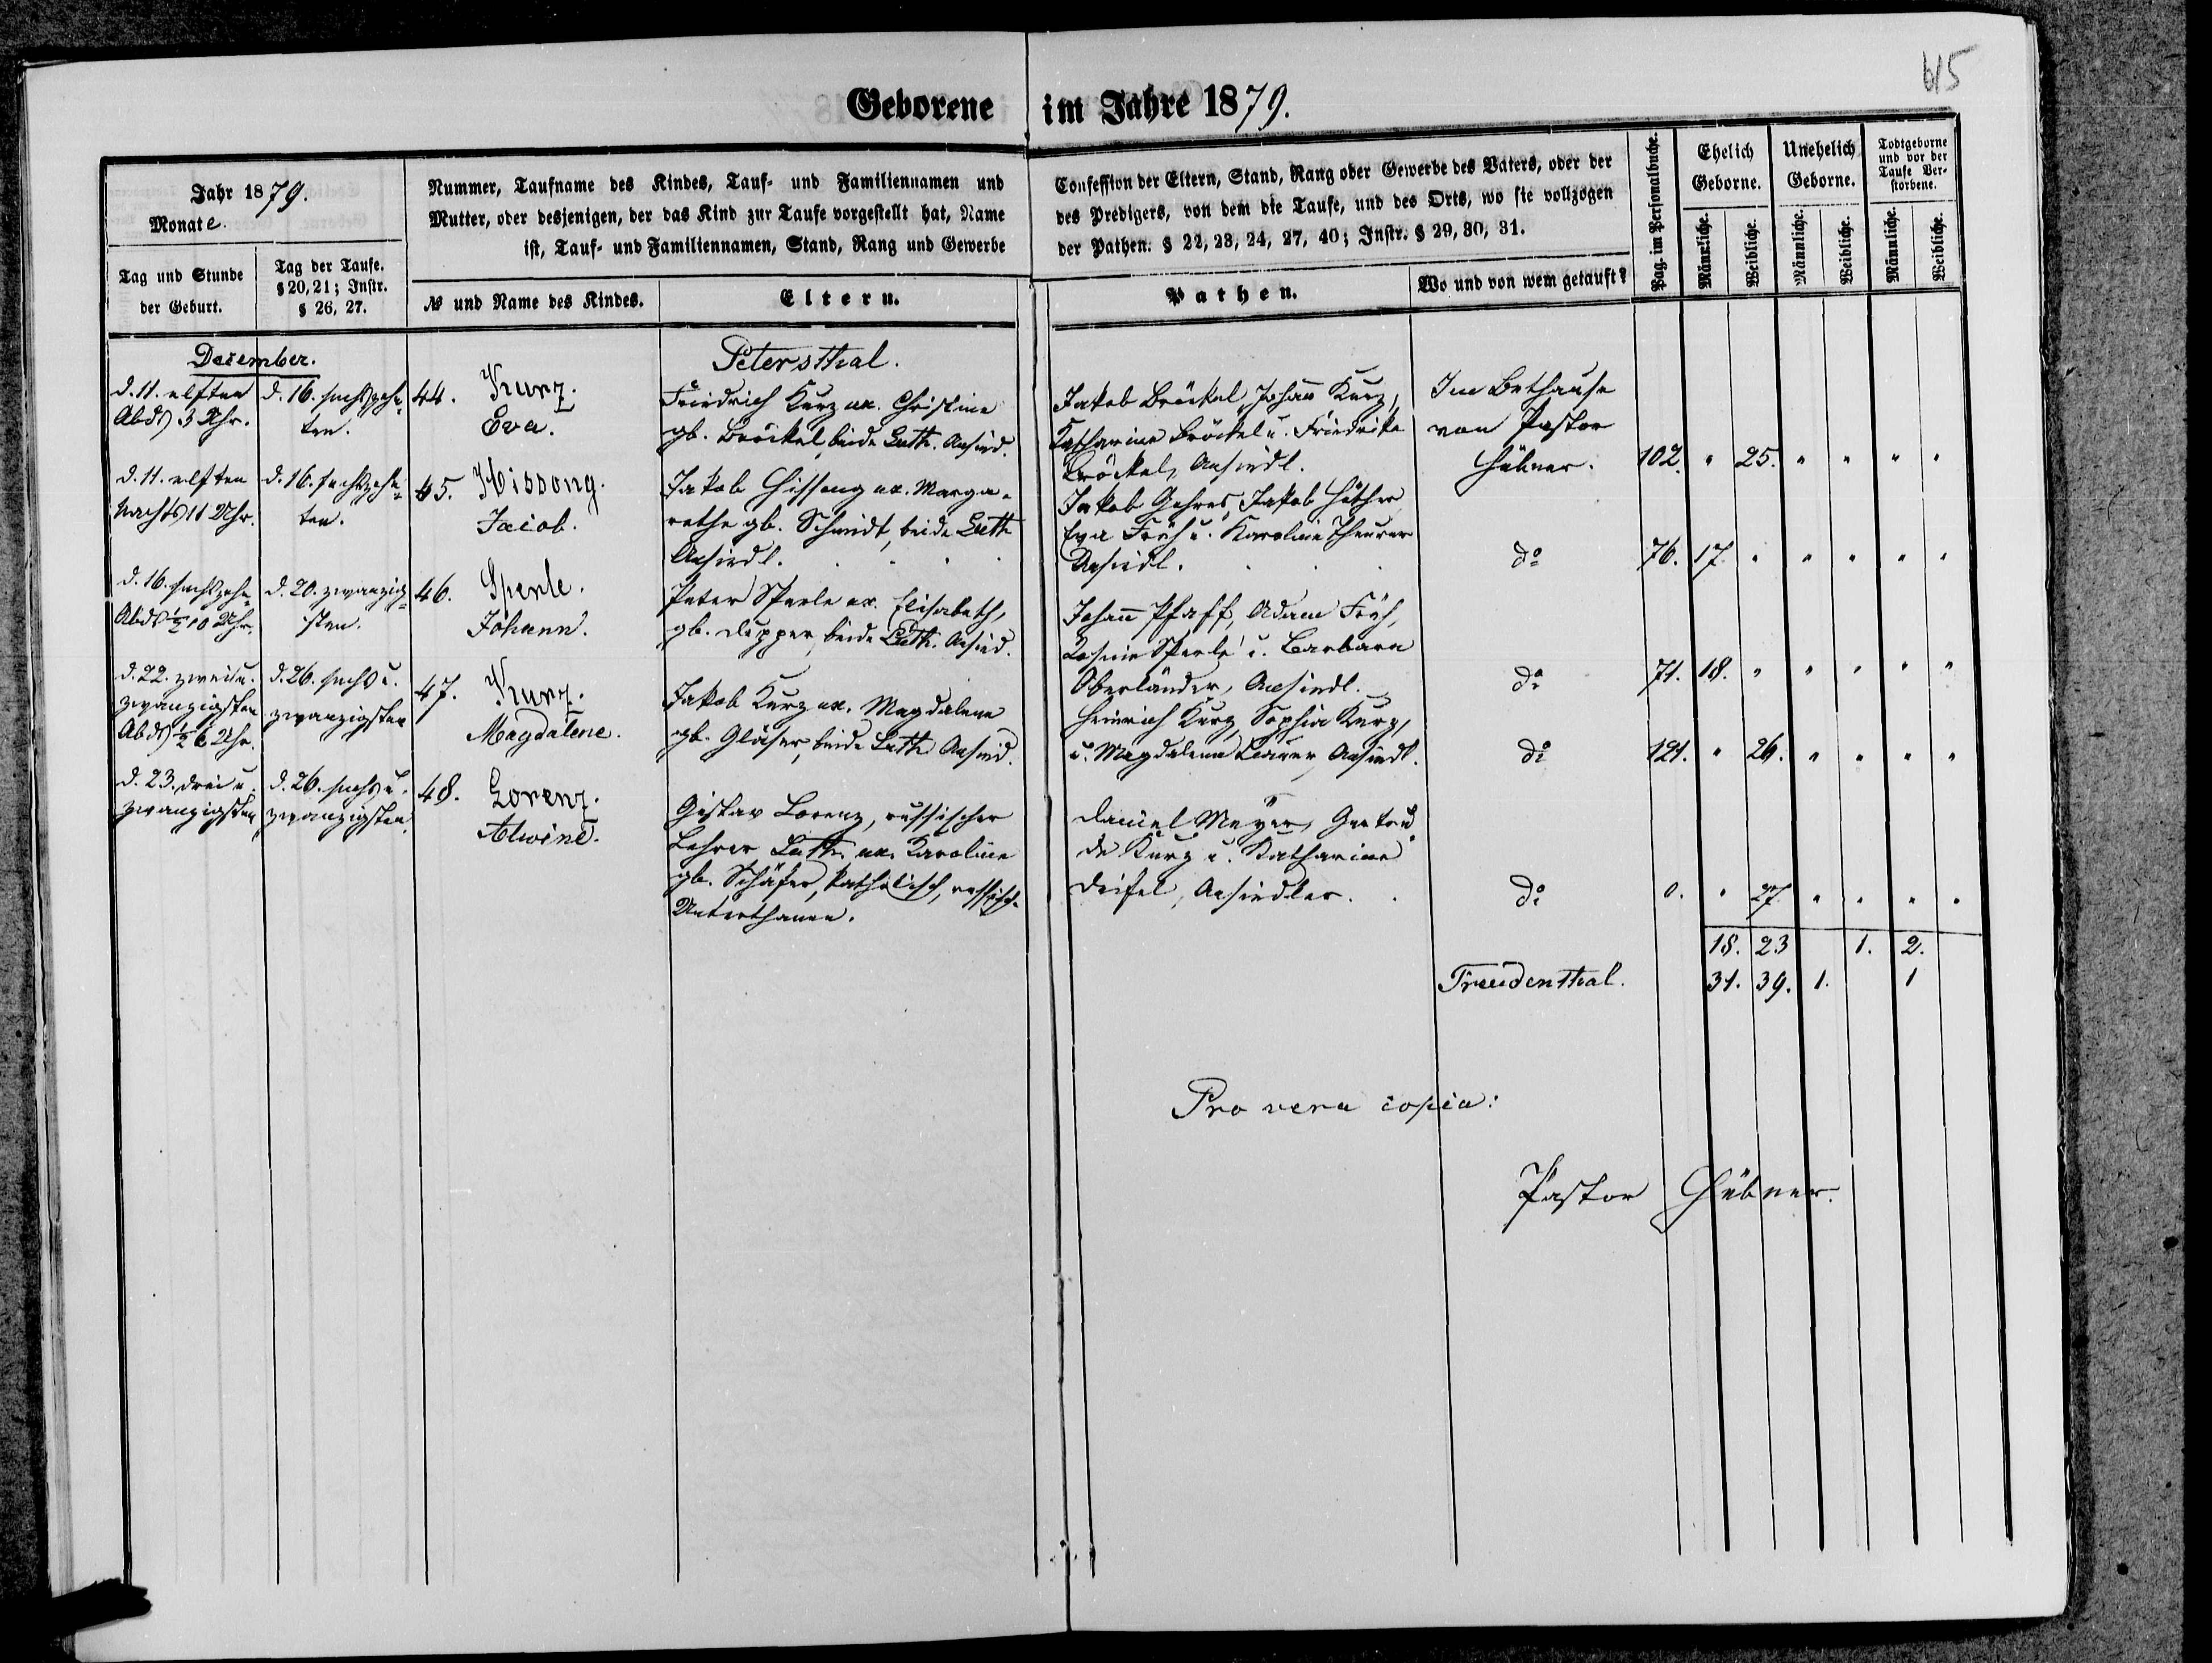 615
Geborene im Jahre 1879.
Jahr 1879.
Monate.
Tag und Stunde
der Geburt.
Tag der Taufe.
§ 20, 21; Instr.
§ 26, 27.
Nummer, Taufname des Kindes, Tauf- und Familiennamen und
Mutter, oder desjenigen, der das Kind zur Taufe vorgestellt hat, Name
ist, Tauf- und Familiennamen, Stand, Rang und Gewerbe
№ und Name des Kindes.
Eltern.
Confession der Eltern, Stand, Rang oder Gewerbe des Vaters, oder der
des Predigers, von dem die Taufe, und des Orts, wo sie vollzogen
der Pathen. § 22, 23, 24, 27, 40; Instr. § 29, 30, 31.
Pathen.
Wo und von wem getauft?
Pag. im Personalbuche.
Ehelich
Geborne.
Männliche.
Weibliche.
Unehelich
Geborne.
Männliche.
Weibliche.
Todtgeborne
und vor der
Taufe Ver-
storbene.
Männliche.
Weibliche.
December.
Petersthal.
d. 11. elften
Abds 3 Uhr.
d. 16. sechszehn-
ten.
44. Kurz.
Eva.
Friedrich Kurz ux. Christine
gb. Bröckel, beide Luth. Ansied.
Jakob Bröckel, Johann Kurz,
Katharine Bröckel u. Friedrike
Bröckel, Ansiedl.
Im Bethause
von Pastor
Hübner.
102. " 25. " " " "
d. 11. elften
Nachts 11 Uhr.
d. 16. sechszehn-
ten.
45. Hissong.
Jacob.
Jakob Hissong ux. Marga-
rethe gb. Schmidt, beide Luth
Ansiedl.
Jakob Gehres, Jakob Häther
Eva Föhs u. Karoline Theurer
Ansiedl.
do
76. 17. " " " " "
d. 16. sechszehn-
Abds ½ 10 Uhr.
d. 20. zwanzig-
sten.
46. Sperle.
Johann.
Peter Sperle ux. Elisabeth,
gb. Dupper, beide Luth. Ansied.
Johann Pfaff, Adam Föhs,
Rosine Sperle u. Barbara
Oberländer, Ansiedl.
do
71. 18. " " " " "
d. 22. zwei u.
zwanzigsten
Abds ½ 6 Uhr.
d. 26. sechs u.
zwanzigsten
47. Kurz.
Magdalene.
Jakob Kurz ux. Magdalena
gb. Gläser, beide Luth Ansied.
Heinrich Kurz, Sophia Kurz,
u. Magdalena Ansiedl.
do
121. " 26. " " " "
d. 23. drei u.
zwanzigsten
d. 26. sechs u.
zwanzigsten.
48. Lorenz.
Alwine.
Gustav Lorenz, russischer
Lehrer Luth. ux. Karoline
gb. Schäfer, katholisch, russisch-
Unterthanen.
Daniel Meyer, Gertru-
de Kurz u. Katharine
Deisel, Ansiedler.
do
0. " 27. " " " "
18. 23 1. 2.
Freudenthal. 31. 39. 1. 1
Pro vera copia:
Pastor Hübner.